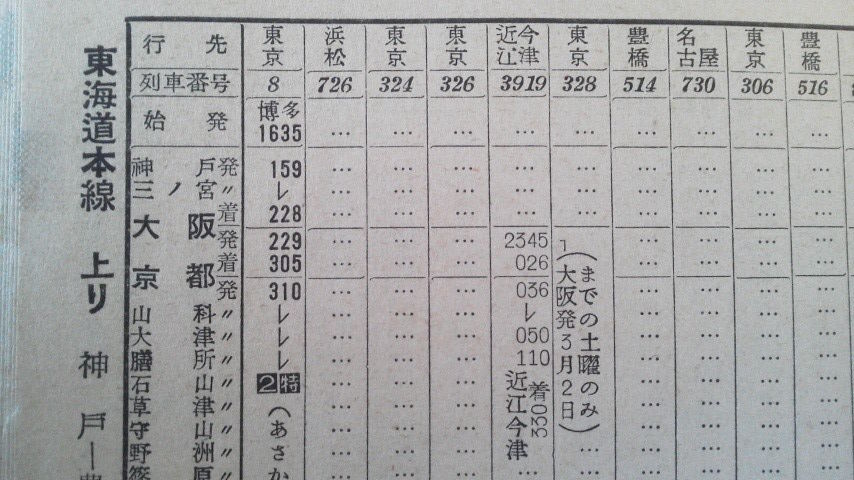 東海道本線 上り 神戸—
行先 東京 浜松 東京 東京 近江今津 東京 豊橋 名古屋 東京 豊橋
列車番号 8 726 324 326 3919 328 514 730 306 516
始発 博多 1635 … … … … … … … … …
神戸発 159 … … … … … … … …
三ノ宮〃 レ … … … … … … … …
大阪着 228 … … … … … … … …
発 229 … … … 2345 … … … …
京都着 305 … … … 026 … … … …
発 310 … … … 036 … … … …
山科〃 レ … … … レ … … … …
大津〃 レ … … … 050 … … … …
膳所〃 レ … … … 110 … … … …
石山〃 2特 … … … … … … …
草津〃 … … … … … … …
守山〃 … … … … … … …
野洲〃 … … … … … … … …
篠原〃 … … … … … … … … …
(あさか
近江今津着330
(大阪発3月2日
までの土曜のみ)